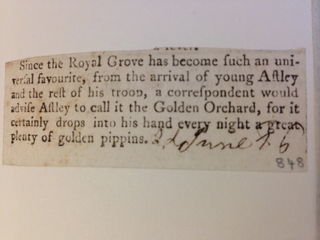 Since the Royal Grove has become such an uni-
verſal favourite, from the arrival of young Aſtley
and the reſt of his troop, a correſpondent would
adviſe Aſtley to call it the Golden Orchard, for it
certainly drops into his hand every night a great
plenty of golden pippins. June
848